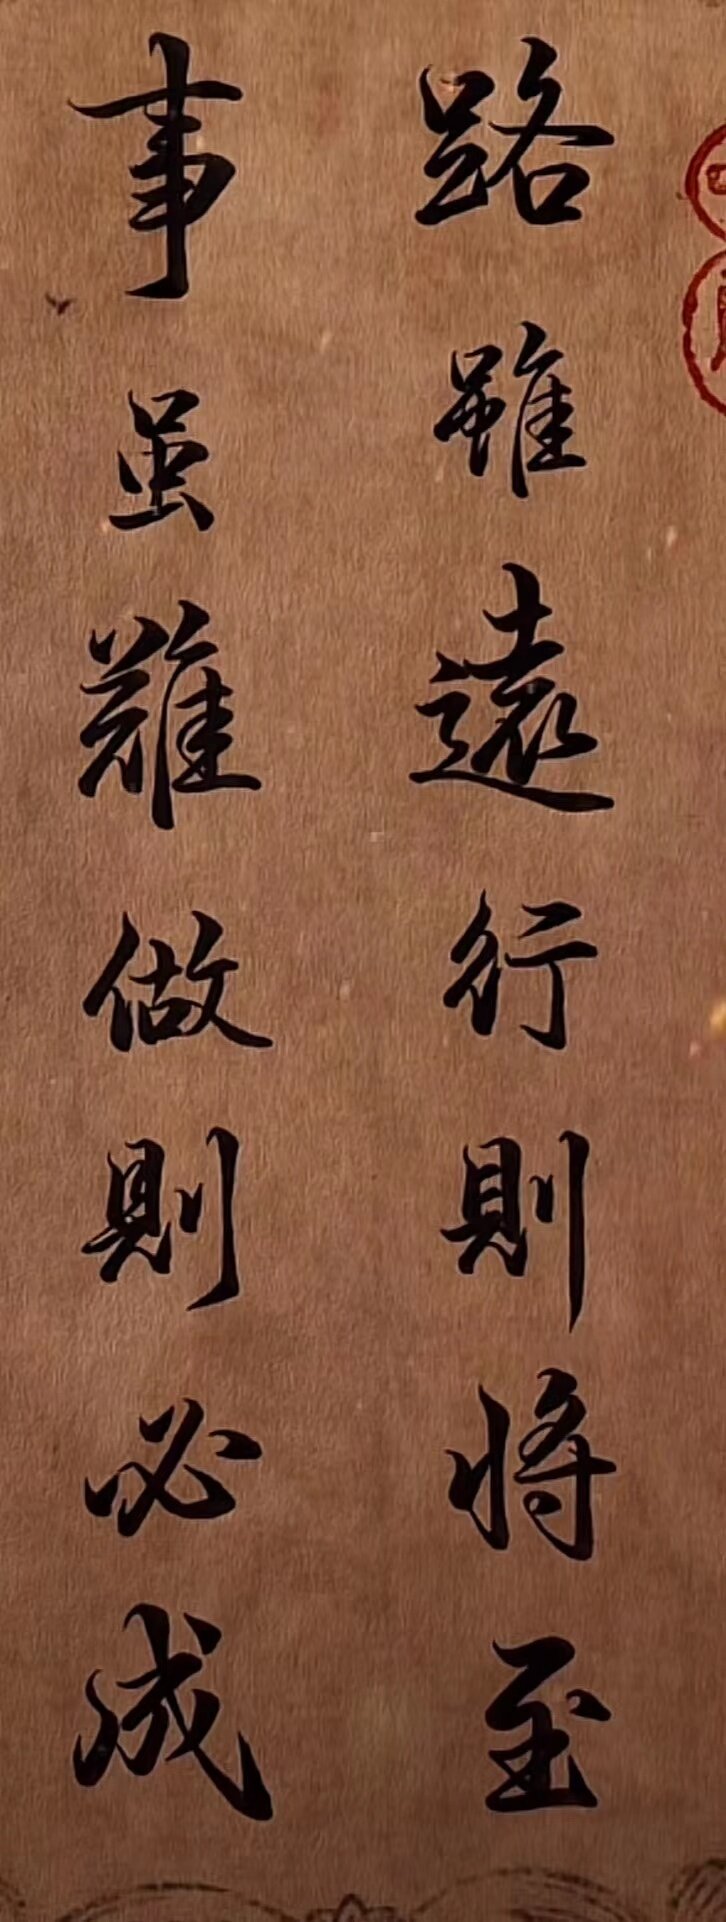 路雖遠行則將至
事虽難做則必成